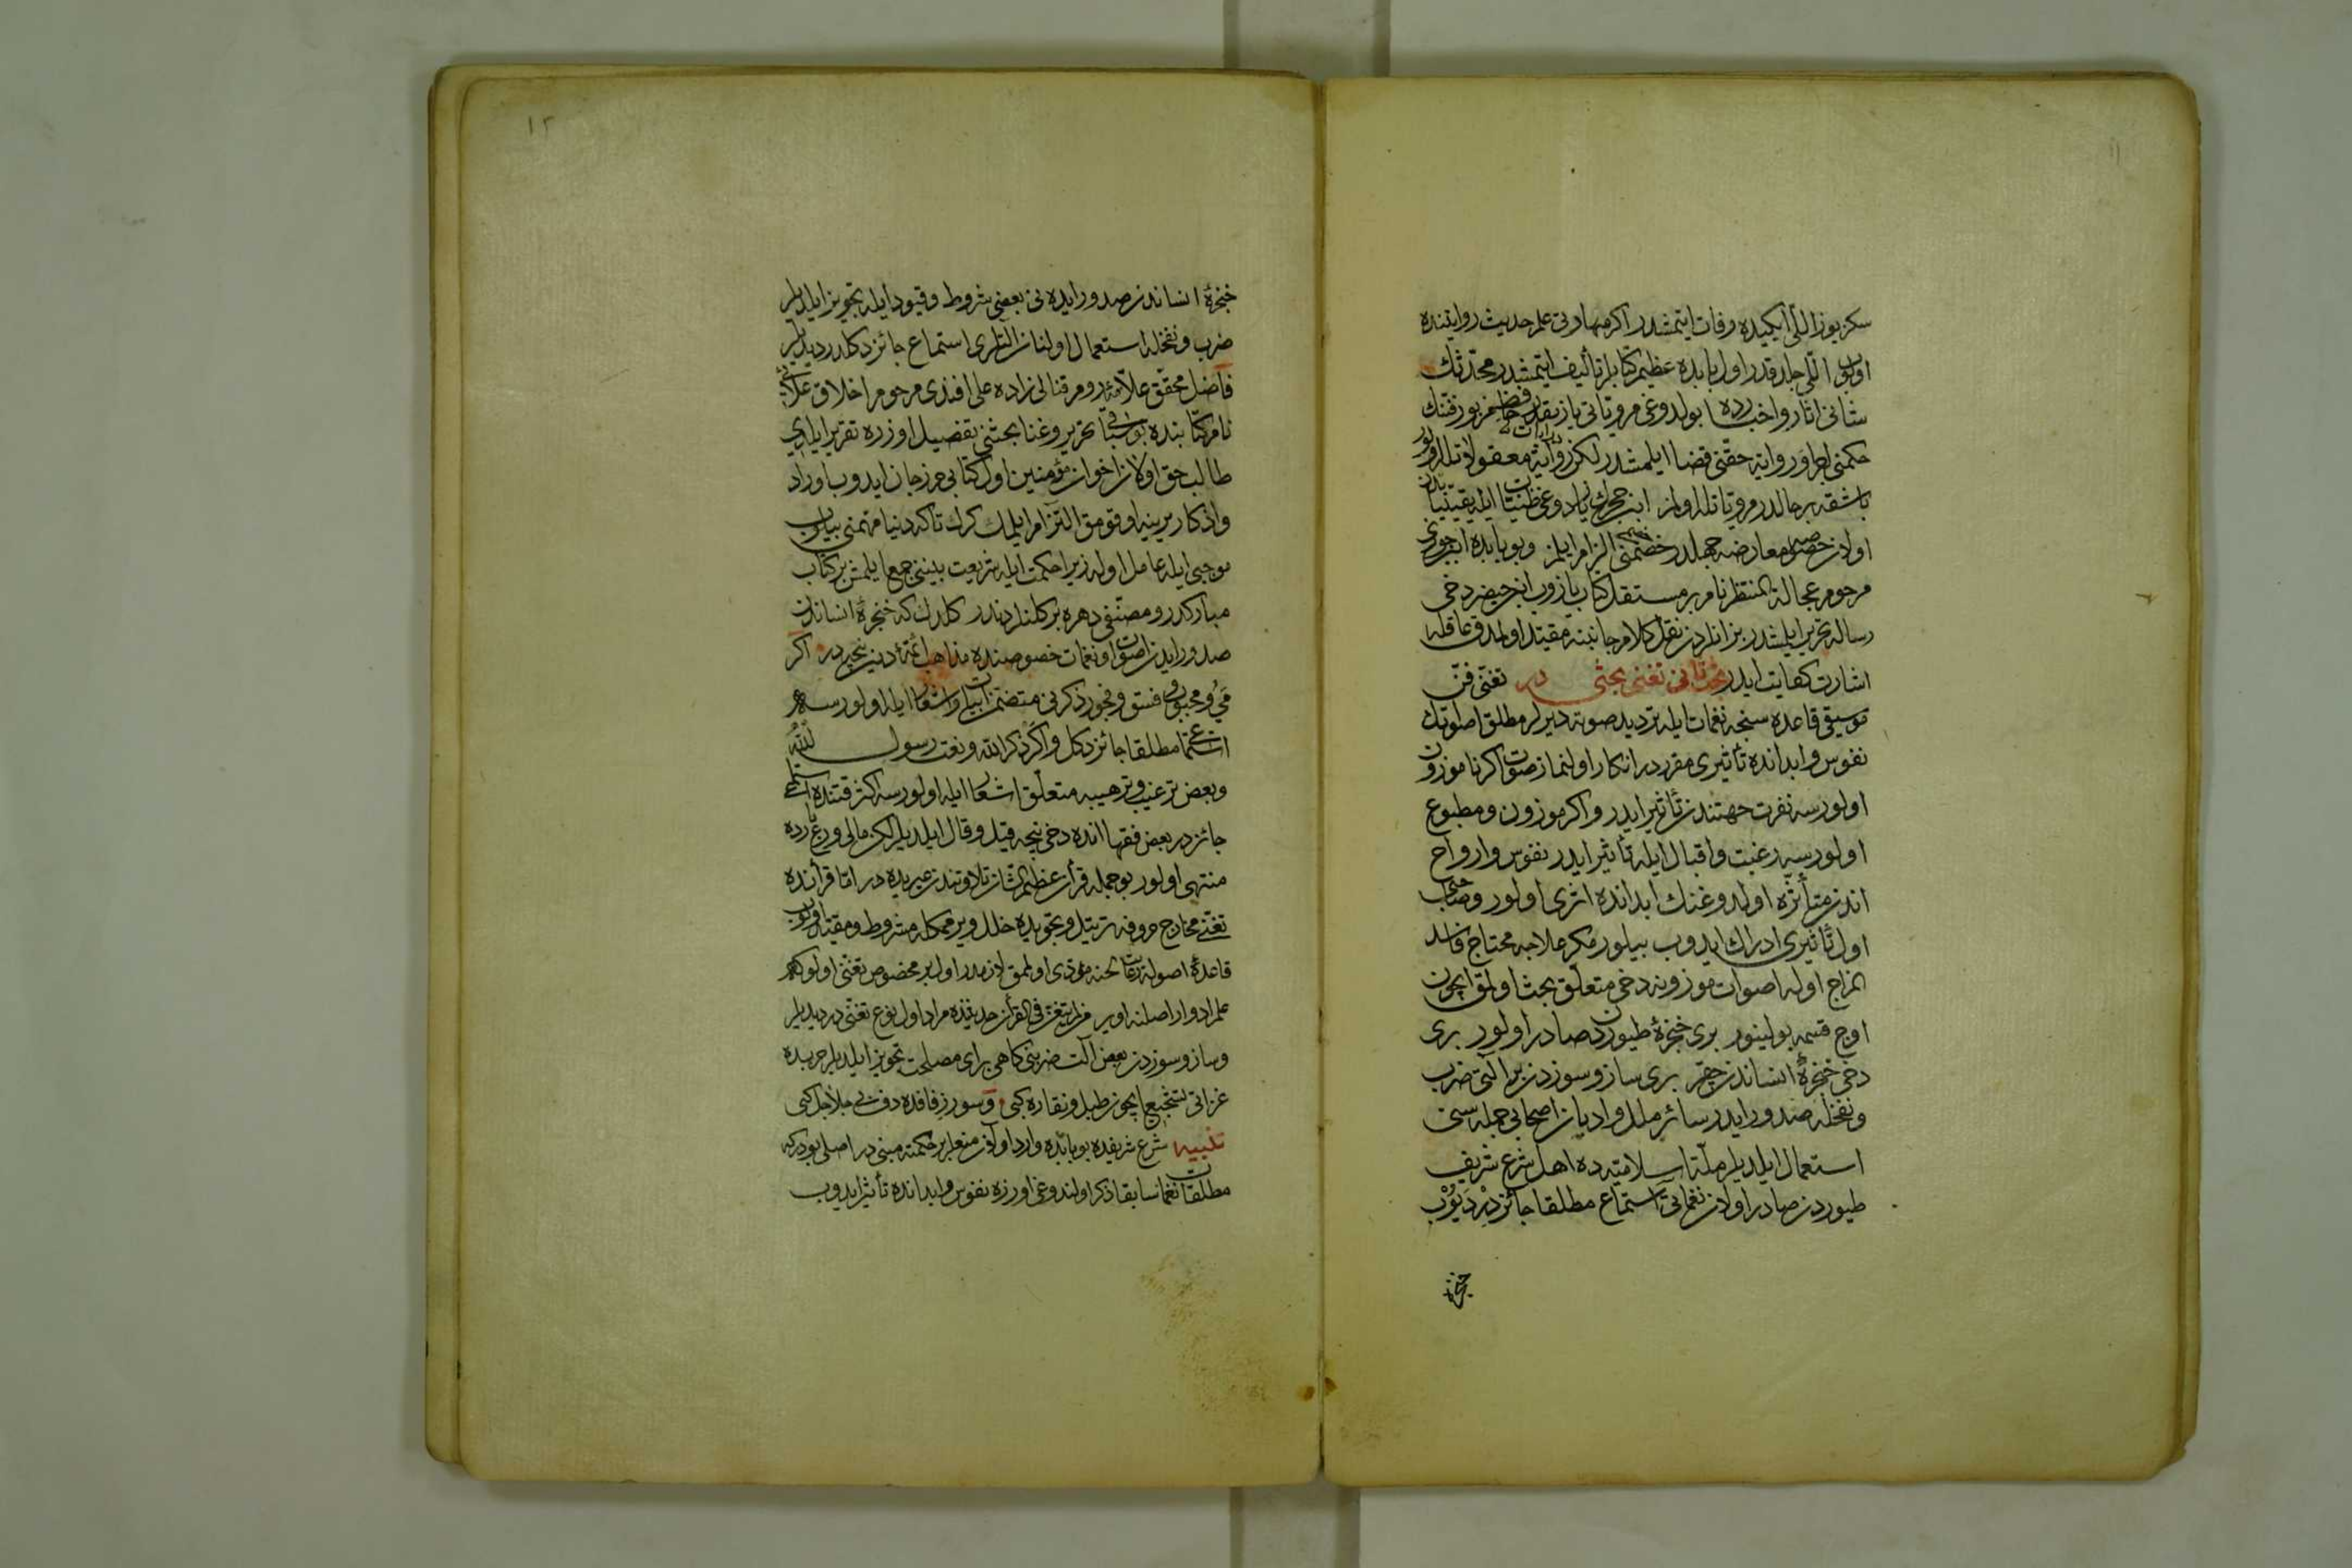 ١١
سكز يوز اللی ایكیده وفات ایتمشدر اكر مهارتی علم حدیث روایتنده
اولوب اللی جلد قدر اول بابده عظیم كتابلر تألیف ایتمشدر محدثك
شانی اثار واخبارده بولدوغی مرویاتی یازمقدر
حكمنی اجرا و روایة حقنی قضا ایلمشدر لكن روایة معقولاتله اولور
باشقه بر حالدر مرویاتله اولمز ابن حجرك ایراد دوغی ظنیات ایله یقینیاتدن
اولان خصوصه معارضه جهلدر خصمنی الزام ایلمز وبو بابده ابن جوزی
مرحوم عجالة المنتظر نام بر مستقل كتاب یازوب ابن حیضر دخی
رساله تحریر ایلمشدر بز انلردن نقل كلام جانبنه مقید اولمدق عاقله
اشارت كفایت ایدر بحث ثانی تغنی بحثی در تغنی فن
موسیقی قاعده سنجه نغمات ایله تردید صوته دیرلر مطلق اصواتك
نفوس وابدانده تأثیری مقرر در انكار اولنماز صوت اكر ناموزون
اولورسه نفرت جهتندن تأثیر ایدر واكر موزون ومطبوع
اولورسه رغبت واقبال ایله تأثیر ایدر نفوس وارواح
اندن متأثره اولدوغنك ابدانده اثری اولور وصاحب
اول تأثیری ادراك ایدوب بیلور مكر علاجه محتاج فاسد
المزاج اوله اصوات موزونه دخی متعلق بحث اولمق ایچون
اوج قسمه بولینور بری خنجرهٔ طیوردن صادر اولور بری
دخی خنجرهٔ انساندن چقر بری ساز وسوزدن بر آلتی ضرب
ونفخله صدور ایدر سائر ملل وادیان اصحابی جمله سنی
استعمال ایلدیلر ملت اسلامیه ده اهل شرع شریف
طیوردن صادر اولان نغماتی استماع مطلقا جائزدر دیوب
خنجرهٔ
١٢
خنجرهٔ انساندن صدور ایده نی بعضی شروط وقیود ایله تجویز ایلدیلر
ضرب ونفخله استعمال اولنان التلری استماع جائز دكلدر دیدیلر
فاضل محقق علامهٔ روم قنالی زاده علی افندی مرحوم اخلاق علائی
نام كتابنده بو سیاقی تحریر وغنا بحثنی تفصیل اوزره تقریر ایلدی
طالب حق اولان اخوان مؤمنین اول كتابی حرز جان ایدوب اوراد
واذكار یرینه اوقومق التزام ایلمك كرك تاكه دنیا مهمنی بیلوب
موجبی ایله عامل اوله زیرا حكمت ایله شریعت بیننی جمع ایلمش بر كتاب
مباركدر ومصنفی دهره بر كلنلردندر كلدك كه خنجرهٔ انساندن
صدور ایدن اصوات ونغمات خصوصنده مذاهب ائمهٔ دین نیجه در اكر
می ومحبوب وفسق وفجور ذكرنی متضمن ابیات واشعار ایله اولورسه
استماعی مطلقا جائز دكل واكر ذكر الله ونعت رسول الله
وبعض ترغیب وترهیبه متعلق اشعار ایله اولورسه اكثر قتنده استماع
جائزدر بعض فقها انده دخی نیجه قیل وقال ایلدیلر لكن مالی ورعه
منتهی اولور بو جمله قرآن عظیم الشان تلاوتندن غیریده در اما قرآنده
تغنی مخارج حروفه ترتیل وتجویده خلل ویرممكله مشروط ومقید اولوب
قاعدهٔ اصوله رعایت لحنه مؤدی اولمق لازمدر اول بر مخصوص تغنی اولور كه
علم ادوار اصلنه اویر من لم یتغن فی القرآن حدیثنده مراد اول نوع تغنی در دیدیلر
وساز وسوزدن بعض آلت ضربنی كاهی برای مصلحت تجویز ایلدیلر حربده
غزاتی تشجیع ایچون طبل ونقاره كبی وسور زفافده دف بی جلاجل كبی
تنبیه شرع شریفده بو بابده وارد اولان منعلر بر حكمته مبنی در اصلی بودر كه
مطلقا نغمات سابقا ذكر اولندوغی اوزره نفوس وابدانده تأثیر ایدوب